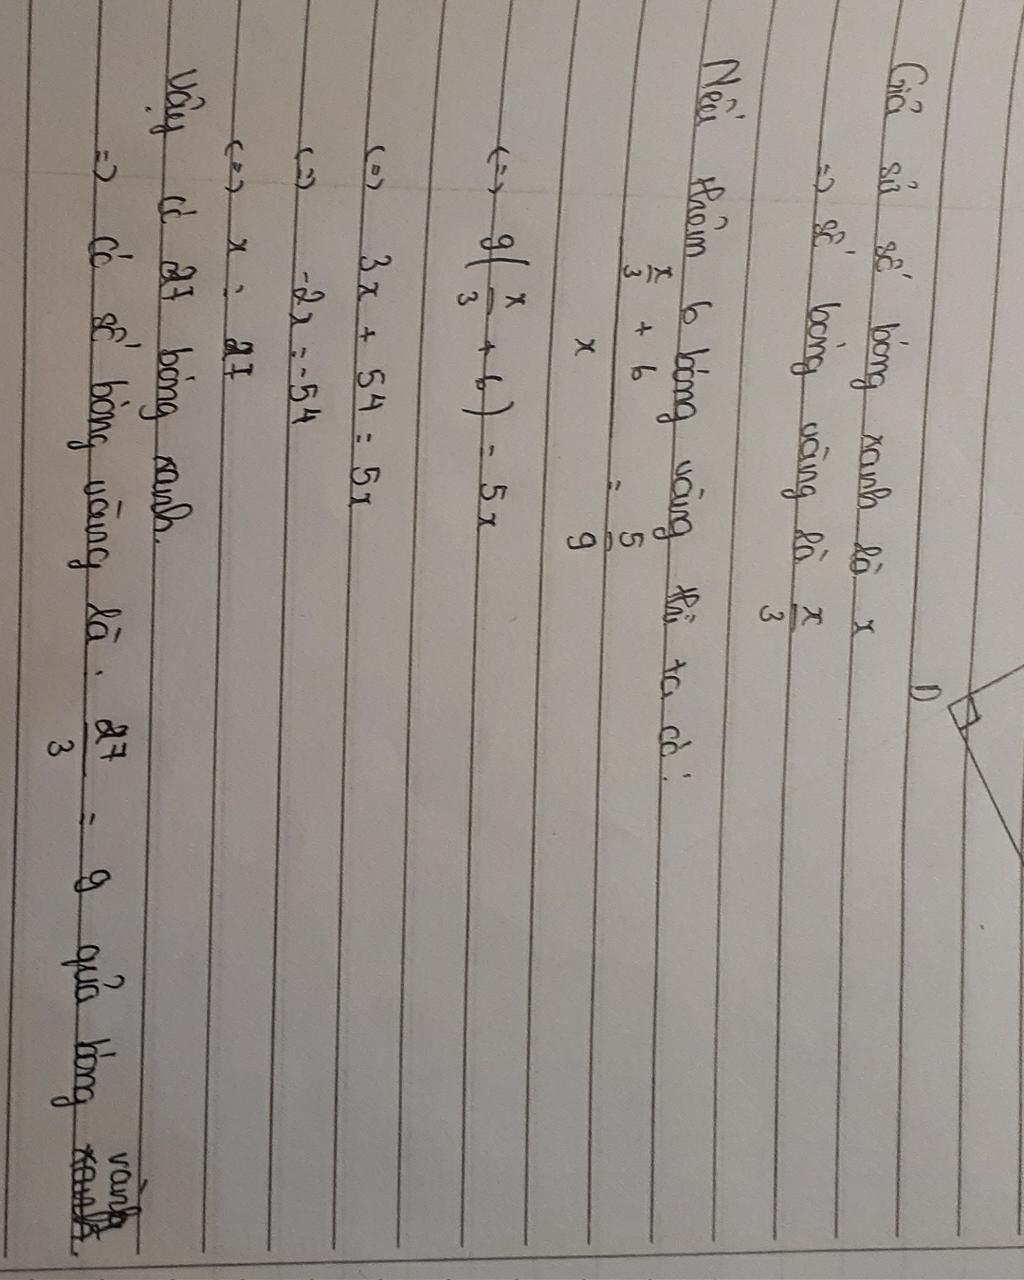 D
Giả sử số bóng xanh là x
=> số bóng vàng là x/3
Nếu thêm 6 bóng vàng thì ta có:
(x/3 + 6)/x = 5/9
(=) 9(x/3 + 6) = 5x
(=) 3x + 54 = 5x
(=) -2x = -54
(=) x = 27
Vậy có 27 bóng xanh.
=> Có số bóng vàng là: 27/3 = 9 quả bóng vành